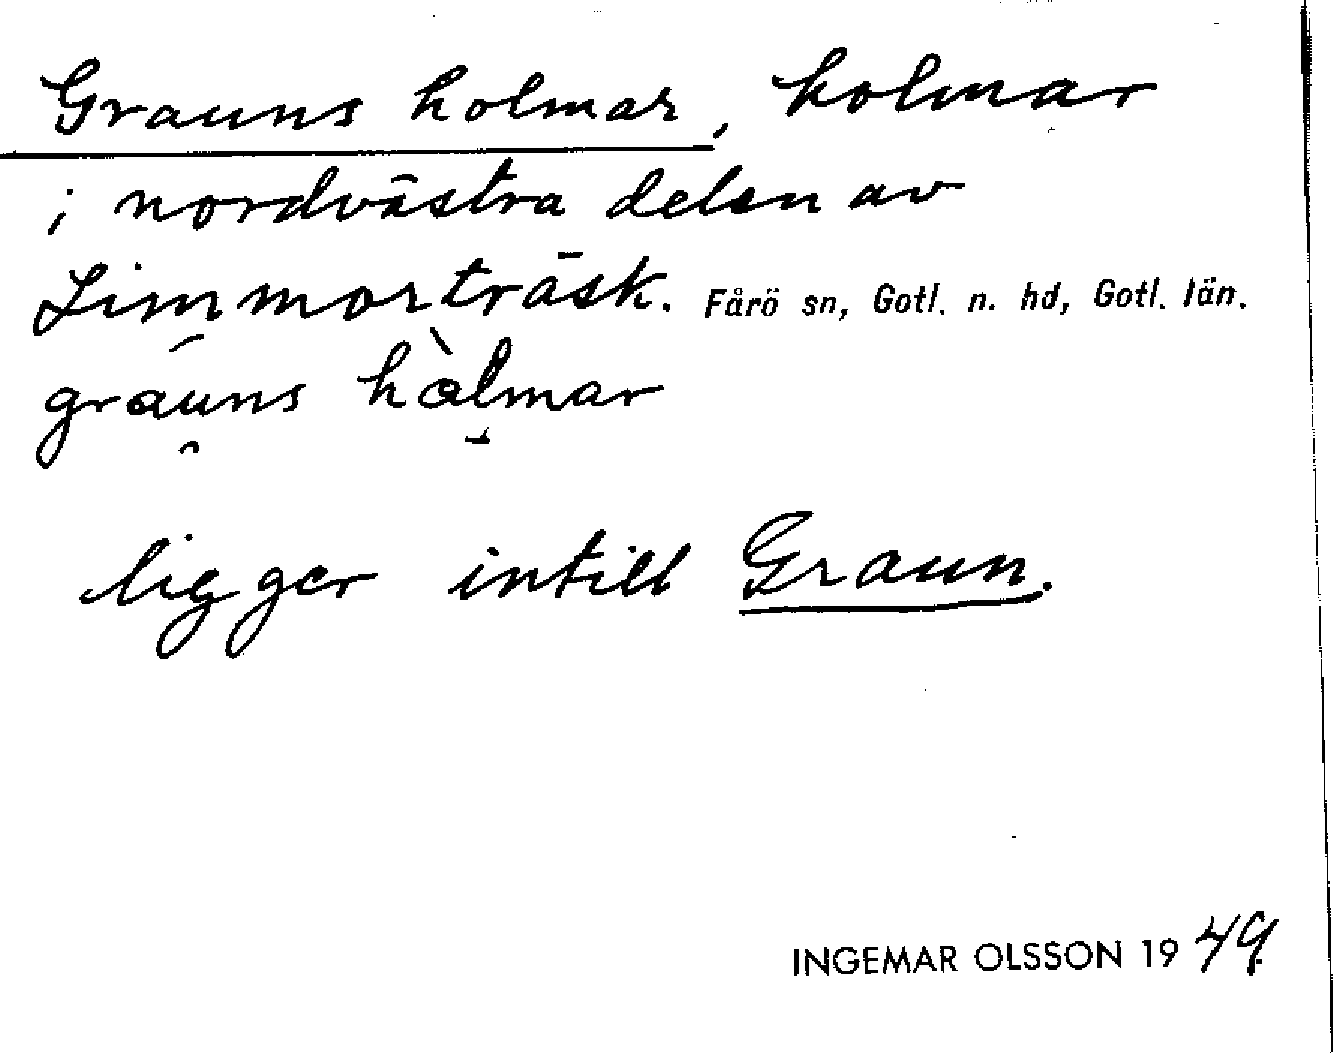 Grauns holmar, holmar
i nordvästra delen av
Limmorträsk. Fårö sn, Gotl. n. hd, Gotl. län.
gráuns hàlmar
ligger intill Graun.
INGEMAR OLSSON 1949